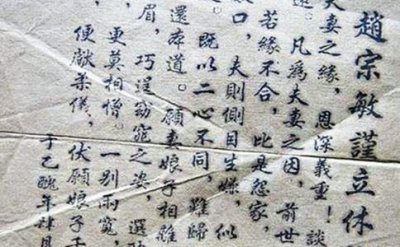 趙宗敏謹立休
夫妻之緣，恩深義重！談
遠。凡為夫妻之因，前世
若緣不合，比是怨家，
口，夫則側目生嫌，似
。既以二心不同，難歸
還本道。願妻娘子相離
眉，巧逞窈窕之姿，選
更莫相憎。一別兩寬，
便獻柔儀，伏願娘子千
于乙醜年肆月